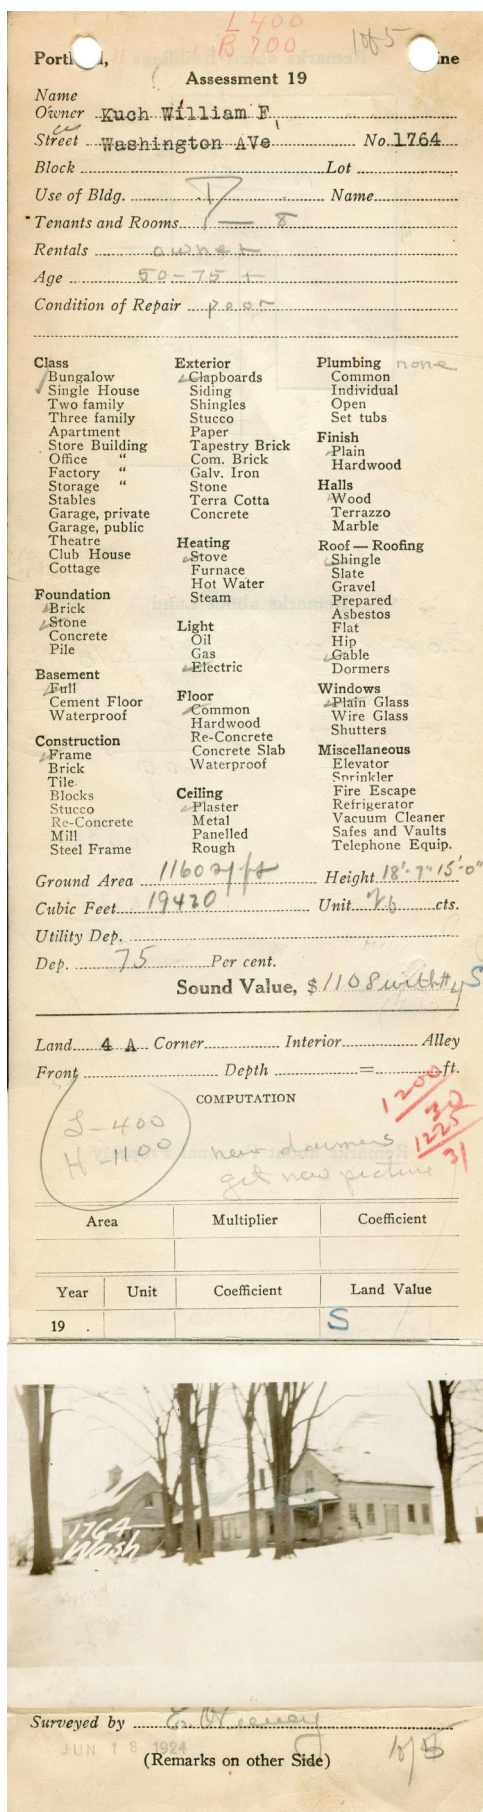 L 400
B 700
1 of 5
Assessment 19
Name
Owner Kuch William F.
Street Washington AVe No. 1764
Block Lot
Use of Bldg. Name
Tenants and Rooms 1 — 8
Rentals owner
Age 50-75 +
Condition of Repair poor
Class
Bungalow
Single House
Two family
Three family
Apartment
Store Building
Office "
Factory "
Storage "
Stables
Garage, private
Garage, public
Theatre
Club House
Cottage
Foundation
Brick
Stone
Concrete
Pile
Basement
Full
Cement Floor
Waterproof
Construction
Frame
Brick
Tile
Blocks
Stucco
Re-Concrete
Mill
Steel Frame
Exterior
Clapboards
Siding
Shingles
Stucco
Paper
Tapestry Brick
Com. Brick
Galv. Iron
Stone
Terra Cotta
Concrete
Heating
Stove
Furnace
Hot Water
Steam
Light
Oil
Gas
Electric
Floor
Common
Hardwood
Re-Concrete
Concrete Slab
Waterproof
Ceiling
Plaster
Metal
Panelled
Rough
Plumbing none
Common
Individual
Open
Set tubs
Finish
Plain
Hardwood
Halls
Wood
Terrazzo
Marble
Roof — Roofing
Shingle
Slate
Gravel
Prepared
Asbestos
Flat
Hip
Gable
Dormers
Windows
Plain Glass
Wire Glass
Shutters
Miscellaneous
Elevator
Sprinkler
Fire Escape
Refrigerator
Vacuum Cleaner
Safes and Vaults
Telephone Equip.
Ground Area 1160 sq fts Height 18'-7" 15'-0"
Cubic Feet 19420 Unit cts.
Utility Dep.
Dep. 75 Per cent.
Sound Value, $ 1108 with #4 S
Land 4 A Corner Interior Alley
Front Depth = ft.
COMPUTATION
1200
30
1225
31
L-400
H-1100
new dormers
get new picture
Area Multiplier Coefficient
Year Unit Coefficient Land Value
19 . S
1764
Wash
Surveyed by
JUN 18 1924
(Remarks on other Side)